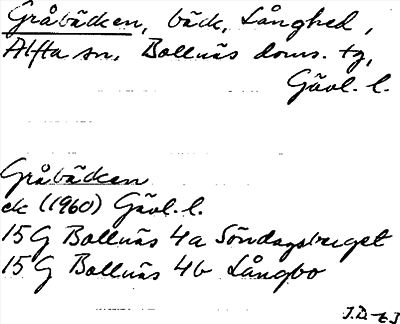 Gråbäcken, bäck, Långhed,
Alfta sn. Bollnäs doms. tg,
Gävl. l.
Gråbäcken
ek (1960) Gävl. l.
15 G Bollnäs 4a Söndagsberget
15 G Bollnäs 4b Långbo
J.D-63